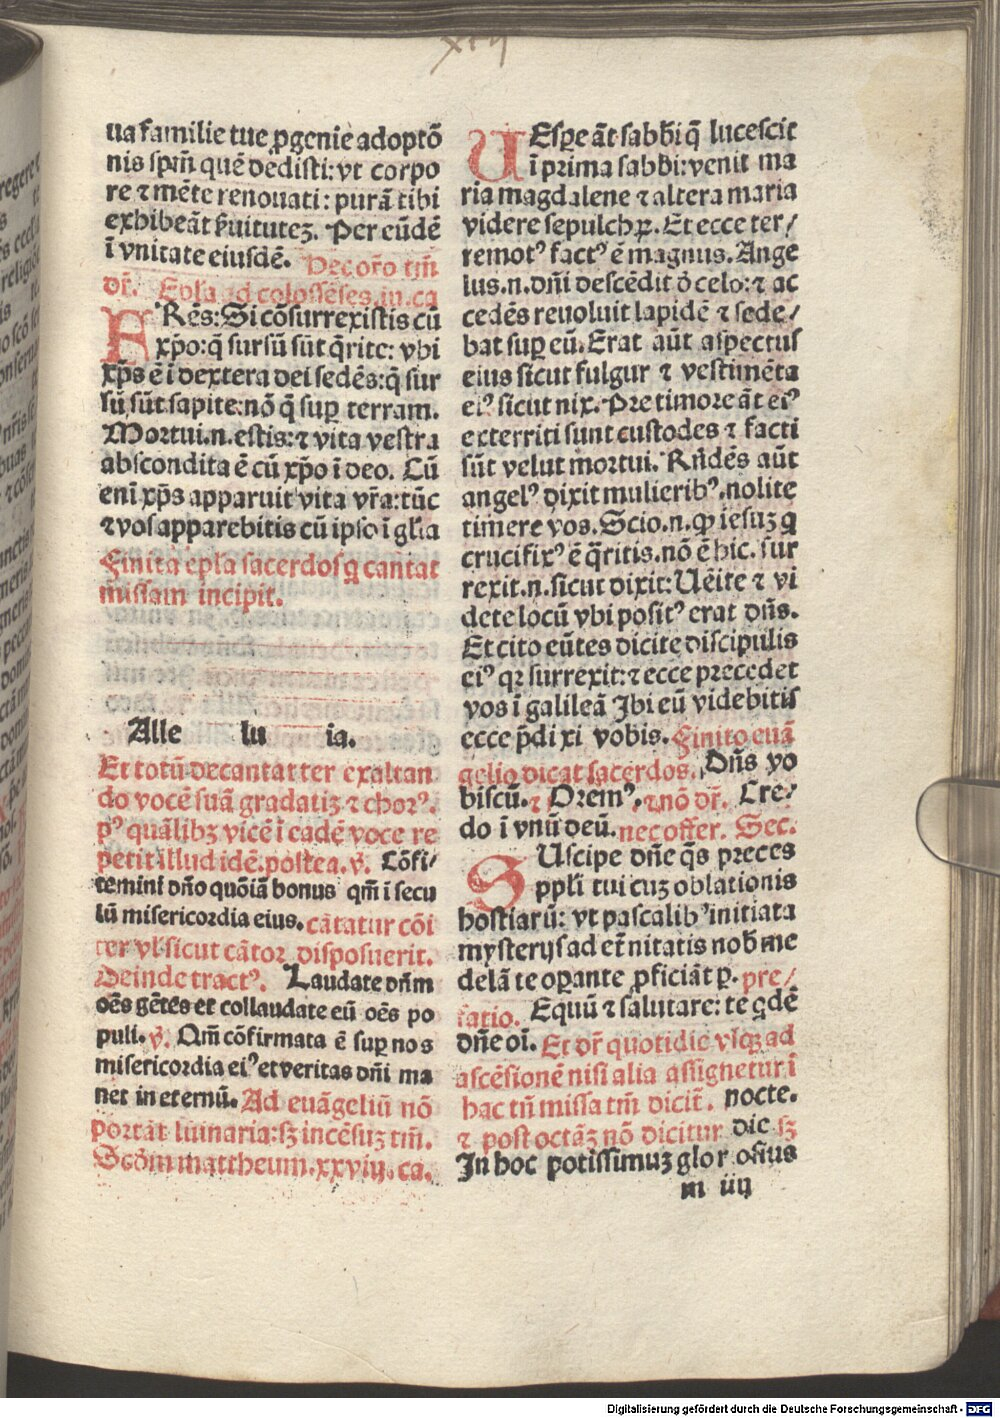 ua familie tue ꝓgenie adoptō
nis sp̄m quē dedisti: vt corpo
re ⁊ mēte renouati: purā tibi
exhibeāt s̄uitutez. Per eūdē
ī vnitate eiusdē. Hec or̄o tm̄
dr̄. Ep̄la ad colossēses.iii.ca
FRēs: Si cōsurrexistis cū
xp̄o: q̄ sursū sūt q̄rite: vbi
xp̄s ē ī dextera dei sedēs: q̄ sur
sū sūt sapite: nō q̄ suꝑ terram.
Mortui.n.estis: ⁊ vita vestra
abscondita ē cū xp̄o ī deo. Cū
enī xp̄s apparuit vita vr̄a: tūc
⁊ vos apparebitis cū ipso ī gl̄ia
Finita ep̄la sacerdos q̄ cantat
missam incipit.
Alle lu ia.
Et totū decantat ter exaltan
do vocē suā gradatiz ⁊ chorꝰ.
pꝰ quālibz vicē ī eadē voce re
petit illud idē. postea. v̄. Cōfi/
temini dn̄o quōiā bonus qm̄ ī secu
lū misericordia eius. cātatur cōi
ter vl̄ sicut cātor disposuerit.
Deinde tractꝰ. Laudate dn̄m
oēs gētes et collaudate eū oēs po
puli. v̄. Qm̄ cōfirmata ē suꝑ nos
misericordia eiꝰ et veritas dn̄i ma
net in eternū. Ad euāgeliū nō
portāt luinaria: sz incēsuz tm̄.
Scd̄m mattheum.xxviij.ca.
UEsꝑe āt sabb̄i q̄ lucescit
ī prima sabb̄i: venit ma
ria magdalene ⁊ altera maria
videre sepulchꝝ. Et ecce ter/
remotꝰ factꝰ ē magnus. Ange
lus.n.dn̄i descēdit d̄ celo: ⁊ ac
cedēs reuoluit lapidē ⁊ sede/
bat suꝑ eū. Erat aūt aspectus
eius sicut fulgur ⁊ vestimēta
eiꝰ sicut nix. Pre timore āt eiꝰ
exterriti sunt custodes ⁊ facti
sūt velut mortui. Rn̄dēs aūt
angelꝰ dixit mulieribꝰ. nolite
timere vos. Scio.n.ꝙ iesuz q̄
crucifixꝰ ē q̄ritis. nō ē hic. sur
rexit.n.sicut dixit: Uēite ⁊ vi
dete locū vbi positꝰ erat dn̄s.
Et cito eūtes dicite discipulis
eiꝰ qꝛ surrexit: ⁊ ecce precedet
vos ī galileā Ibi eū videbitis
ecce p̄dixi vobis. Finito euā
gelio dicat sacerdos. Dn̄s vo
biscū. ⁊ Oremꝰ. ⁊ nō dr̄. Cre/
do ī vnū deū. nec offer. Sec.
SUscipe dn̄e q̄s preces
ppl̄i tui cuz oblationis
hostiarū: vt pascalibꝰ initiata
mysterijs ad et̄nitatis nob̄ me
delā te oꝑante ꝓficiāt ꝑ. pre/
fatio. Equū ⁊ salutare: te qdē
dn̄e oī. Et dr̄ quotidie vsqꝫ ad
ascēsionē nisi alia assignetur ī
hac tn̄ missa tm̄ dicit̄. nocte.
⁊ post octāz nō dicitur die sz
In hoc potissimuz glor osius
m iiij